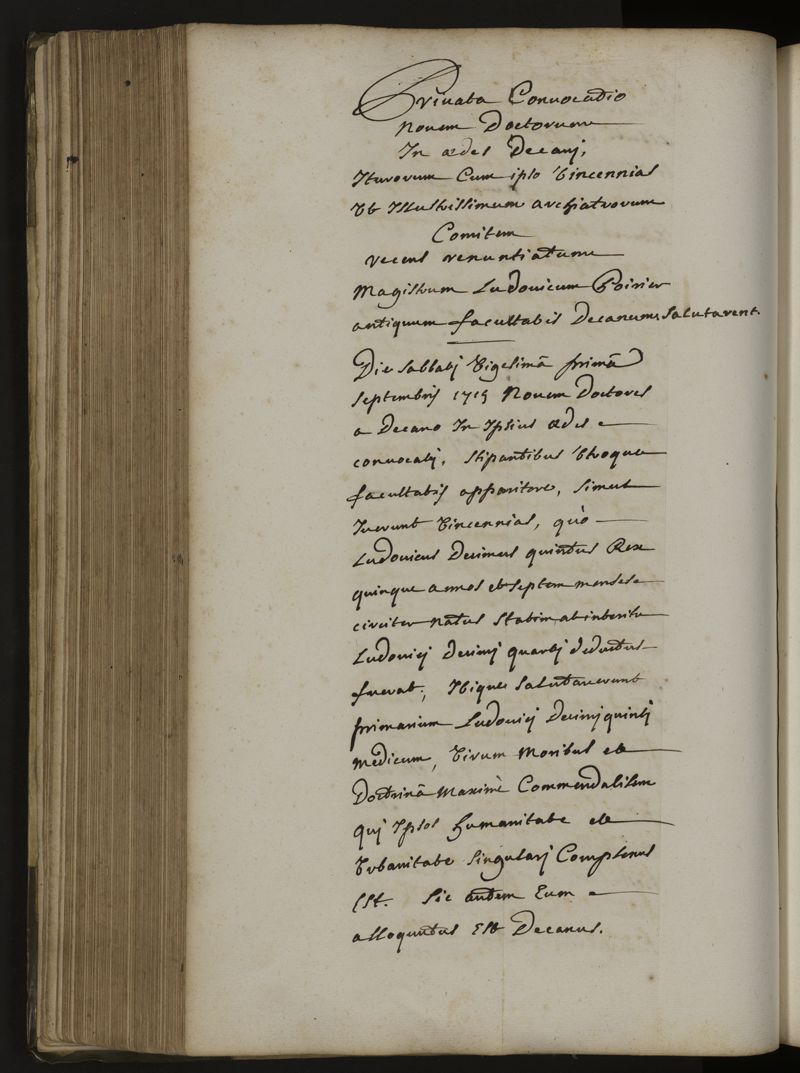 Privata Convocatio
Novem Doctorum
In ædes Decanj,
Iturorum Cum ipso Vincennias
Vt Illustrissimum archiatrorum
Comitem
recens renuntiatum
Magistrum Ludovicum Poirier
antiquum facultatis Decanum, Salutarent.
Die Sabbatj Vigesimâ primâ
Septembris 1715 Novem Doctores
a Decano In Ipsius ædes
convocatj, Stipantibus Vtroque
facultatis apparitore, Simul
Iverunt Vincennias, quò
Ludovicus Decimus quintus Rex
quinque annos et septem menses
circiter natus Statim ab interitu
Ludovicj Decimj quartj deductus
fuerat; Ibique Salutaverunt
primarium Ludovicj Decimj quintj
Medicum, Virum Moribus et
Doctrinâ Maximè Commendabilem
quj Ipsos humanitate et
Vrbanitate Singularj Complexus
Est. Sic autem Eum
alloquutus Est Decanus.